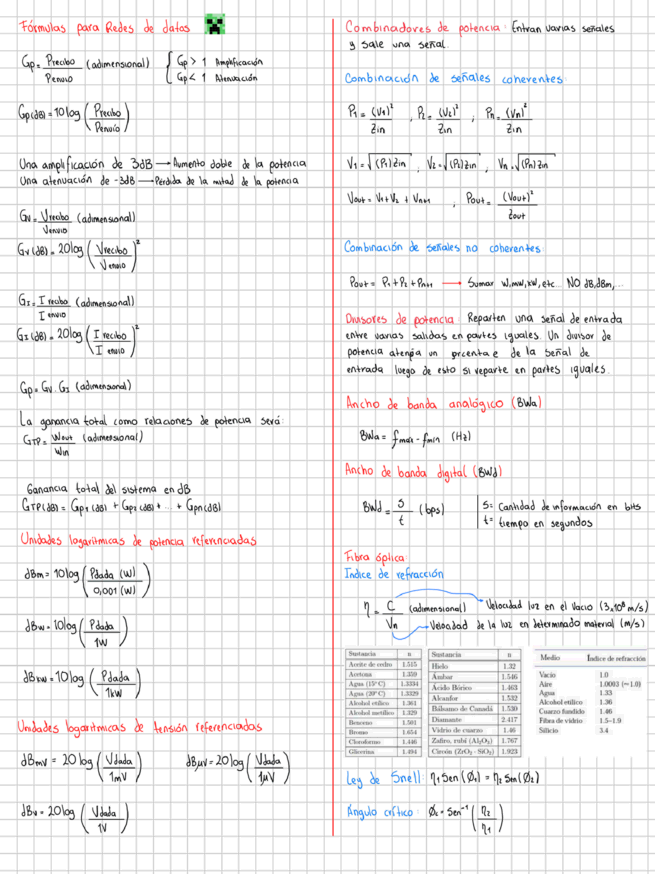 Fórmulas para Redes de datos
Gp = Precibo / Penvio (adimensional) { Gp > 1 Amplificación
Gp < 1 Atenuación
Gp(dB) = 10 log (Precibo / Penvio)
Una amplificación de 3dB → Aumento doble de la potencia
Una atenuación de -3dB → Perdida de la mitad de la potencia
Gv = Vrecibo / Venvio (adimensional)
Gv (dB) = 20 log (Vrecibo / Venvio)²
GI = I recibo / I envio (adimensional)
GI (dB) = 20 log (I recibo / I envio)²
Gp = Gv . GI (adimensional)
La ganancia total como relaciones de potencia será:
GTP = Wout / Win (adimensional)
Ganancia total del sistema en dB
GTP(dB) = Gp1 (dB) + Gp2 (dB) + ... + Gpn(dB)
Unidades logarítmicas de potencia referenciadas
dBm = 10 log (Pdada (W) / 0,001 (W))
dBw = 10 log (Pdada / 1W)
dBkw = 10 log (Pdada / 1kW)
Unidades logarítmicas de tensión referenciadas
dBmV = 20 log (Vdada / 1mV) dBμV = 20 log (Vdada / 1μV)
dBv = 20 log (Vdada / 1V)
Combinadores de potencia: Entran varias señales
y sale una señal.
Combinación de señales coherentes:
P1 = (V1)² / Zin , P2 = (V2)² / Zin , Pn = (Vn)² / Zin
V1 = √(P1) Zin , V2 = √(P2) Zin , Vn = √(Pn) Zin
Vout = V1 + V2 + Vn+1 , Pout = (Vout)² / Zout
Combinación de señales no coherentes:
Pout = P1 + P2 + Pn+1 → Sumar W, mW, kW, etc... NO dB, dBm, ...
Divisores de potencia: Reparten una señal de entrada
entre varias salidas en partes iguales. Un divisor de
potencia
un
de la señal de
entrada luego de esto si reparte en partes iguales.
Ancho de banda analógico (BWa)
BWa = fmax - fmin (Hz)
Ancho de banda digital (BWd)
BWd = S / t (bps) S = Cantidad de información en bits
t = tiempo en segundos
Fibra óptica:
Índice de refracción
η = C / Vn (adimensional) Velocidad luz en el Vacio (3x10⁸ m/s)
Velocidad de la luz en determinado material (m/s)
Sustancia n
Aceite de cedro 1.515
Acetona 1.359
Agua (15° C) 1.3334
Agua (20° C) 1.3329
Alcohol etílico 1.361
Alcohol metílico 1.329
Benceno 1.501
Bromo 1.654
Cloroformo 1.446
Glicerina 1.494
Sustancia n
Hielo 1.32
Ámbar 1.546
Ácido Bórico 1.463
Alcanfor 1.532
Bálsamo de Canadá 1.530
Diamante 2.417
Vidrio de cuarzo 1.46
Zafiro, rubí (Al₂O₃) 1.767
Circón (ZrO₂ · SiO₂) 1.923
Medio Índice de refracción
Vacío 1.0
Aire 1.0003 (~1.0)
Agua 1.33
Alcohol etílico 1.36
Cuarzo fundido 1.46
Fibra de vidrio 1.5–1.9
Silicio 3.4
Ley de Snell: η1 Sen (Ø1) = η2 Sen (Ø2)
Ángulo crítico: Øc = Sen⁻¹ (η2 / η1)